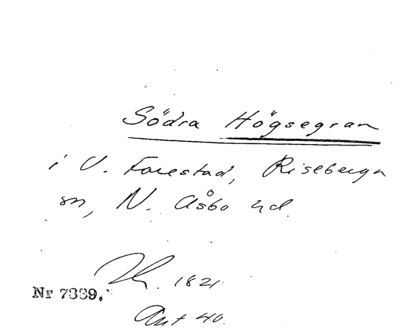 Södra Högsegran
i V. Forestad, Riseberga
sn, N. Åsbo hd.
1821
Nr 7889.
Ant 40.